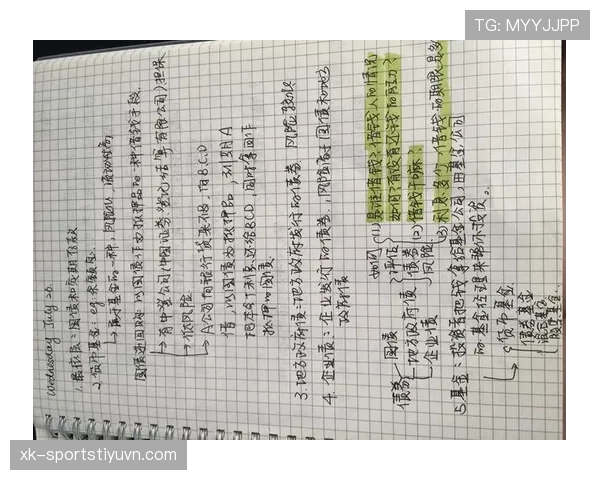 TG: MYYJJPP
Wednesday July 20.
1. 最保底:国债和定期存款
2. 货币基金:eg.余额宝.
→属于基金的一种,风险低,流动性高
国债逆回购:以国债作为抵押品的一种借钱手段.
→有中登公司(中国证券登记结算有限公司)担保
→低风险
→A公司向银行贷来不够,向B.C.D
借,以国债为抵押品,到期A
把本金+利息还给BCD,同时拿回作
抵押的国债.
3.地方政府债:地方政府发行的债券.风险较低
4.企业债:企业发行的债券.,风险高于国债和地方
政府债
债券
国债
地方政府债
企业债
如何
评估
债券
风险
(1)是谁借钱?借钱人的情况
如何?有没有还钱的能力?
(2)借钱干嘛.
(3)利息多少,借钱的期限是多久
5.基金:投资者把钱拿给基金公司,由基金公司
的基金经理来帮你投资。
货币基金
债券基金
混合基金
股票基金.
xk-sportstiyuvn.com